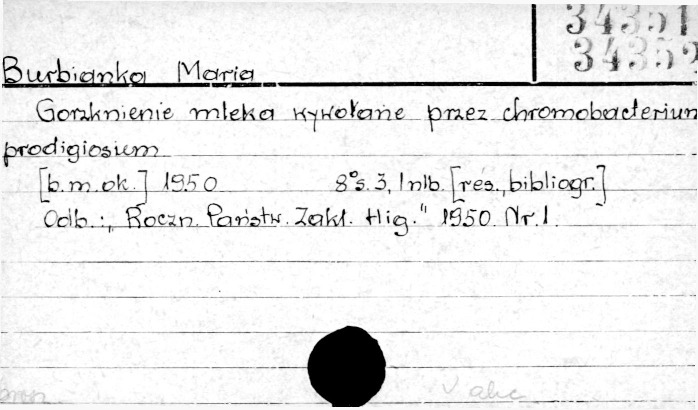 34351
34352
Burbianka Maria
Gorzknienie mleka wywołane przez chromobacterium
prodigiosium
[b.m.ok.] 1950 8°s. 3, 1 nlb. [res., bibliogr.]
Odb.: „Roczn. Państw. Zakł. Hig." 1950. Nr. 1.
v abc